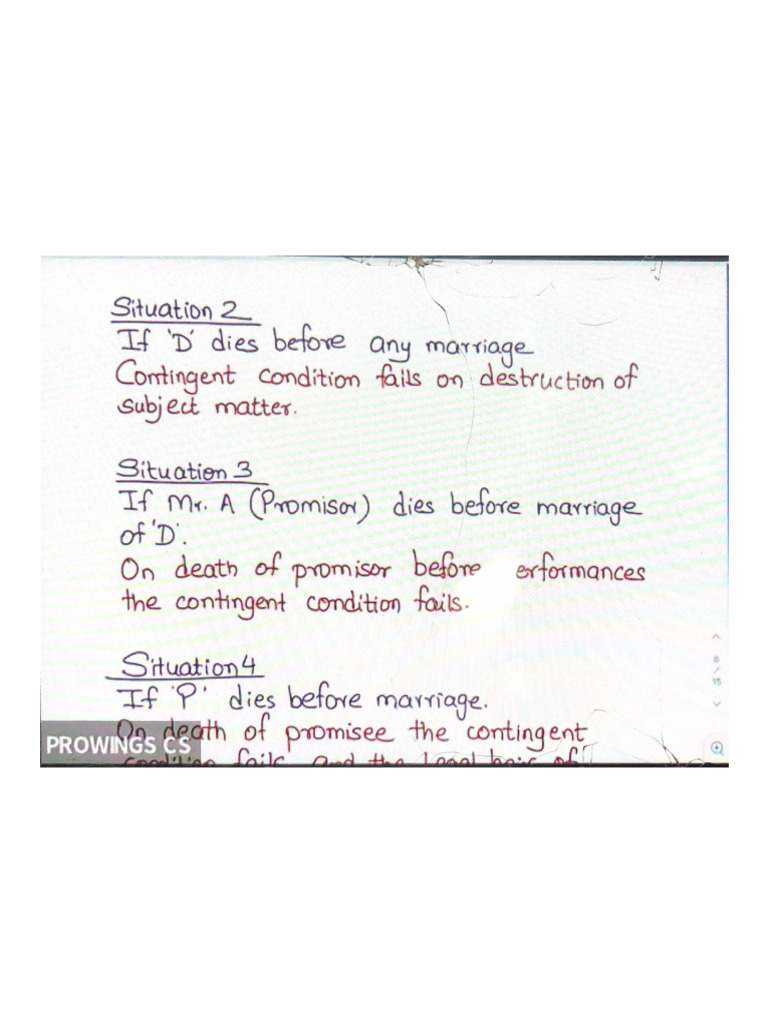 Situation 2
If 'D' dies before any marriage
Contingent condition fails on destruction of
subject matter.
Situation 3
If Mr. A (Promisor) dies before marriage
of 'D'.
On death of promisor before erformances
the contingent condition fails.
Situation 4
If 'P' dies before marriage.
On death of promisee the contingent
condition fails and the legal heir of
PROWINGS CS
8
/
15